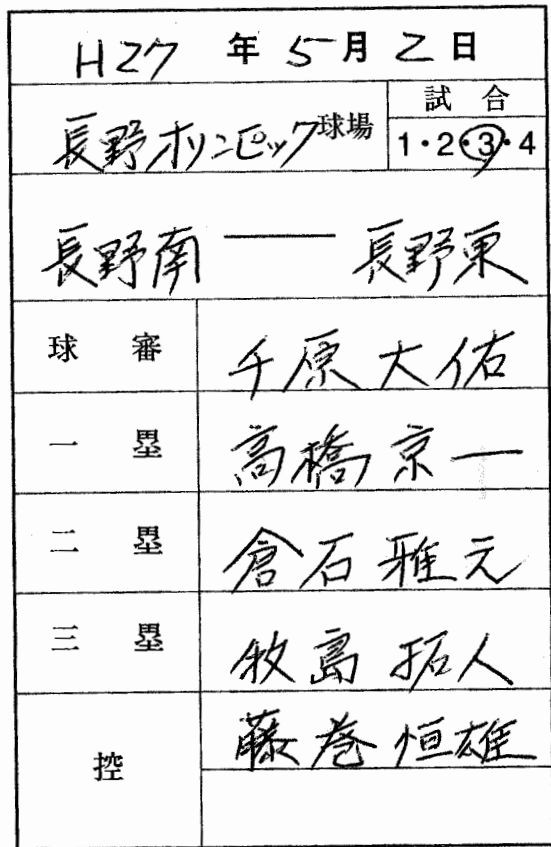 H27 年 5月 2日
長野オリンピック球場
試合
1・2・3・4
長野南 ― 長野東
球審 千原大佑
一塁 高橋京一
二塁 倉石雅元
三塁 牧島拓人
控 藤巻恒雄